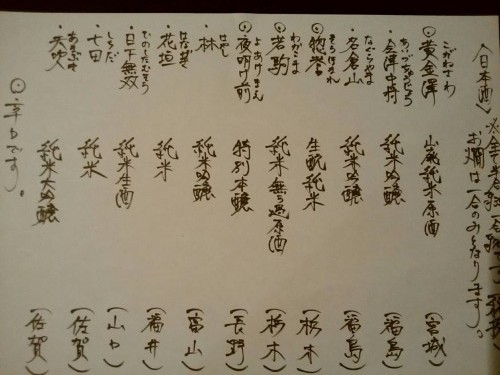 〈日本酒〉
お燗は一合のみとなります。
こがねさわ
・黄金澤 山廃純米原酒 (宮城)
あいづちゅうじょう
・会津中将 純米吟醸 (福島)
なぐらやま
・名倉山 純米吟醸 (福島)
そうほまれ
◎惣誉 生酛純米 (栃木)
わかこま
◎若駒 純米無ろ過原酒 (栃木)
よあけまえ
◎夜明け前 特別本醸 (長野)
はやし
・林 純米吟醸 (富山)
はながき
・花垣 純米 (福井)
ひのしたむそう
・日下無双 純米生酒 (山口)
しちだ
・七田 純米 (佐賀)
あまぶき
・天吹 純米大吟醸 (佐賀)
◎辛口です。